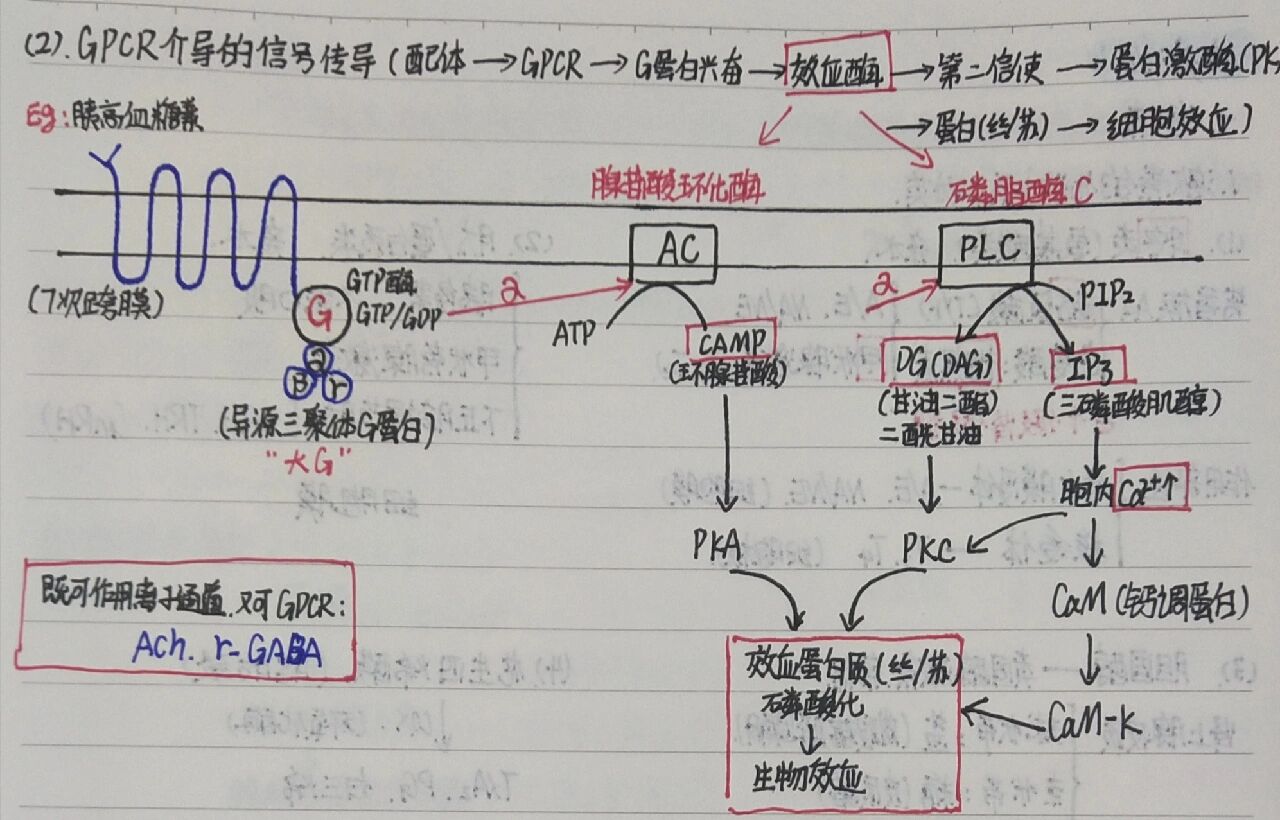 (2). GPCR介导的信号传导 (配体 → GPCR → G蛋白兴奋 → 效应酶 → 第二信使 → 蛋白激酶(PK
→ 蛋白(丝/苏) → 细胞效应)
Eg: 胰高血糖素
腺苷酸环化酶
石磷脂酶C
AC
PLC
(7次跨膜)
G
GTP酶
GTP/GDP
a
a
ATP
PIP₂
CAMP
(环腺苷酸)
DG(DAG)
(甘油二酯)
二酰甘油
IP3
(三磷酸肌醇)
a
β
r
(异源三聚体G蛋白)
"大G"
胞内 Ca²⁺↑
PKA
PKC
CaM (钙调蛋白)
既可作用离子通道.又可GPCR:
Ach. r-GABA
效应蛋白质(丝/苏)
磷酸化
↓
生物效应
CaM-K